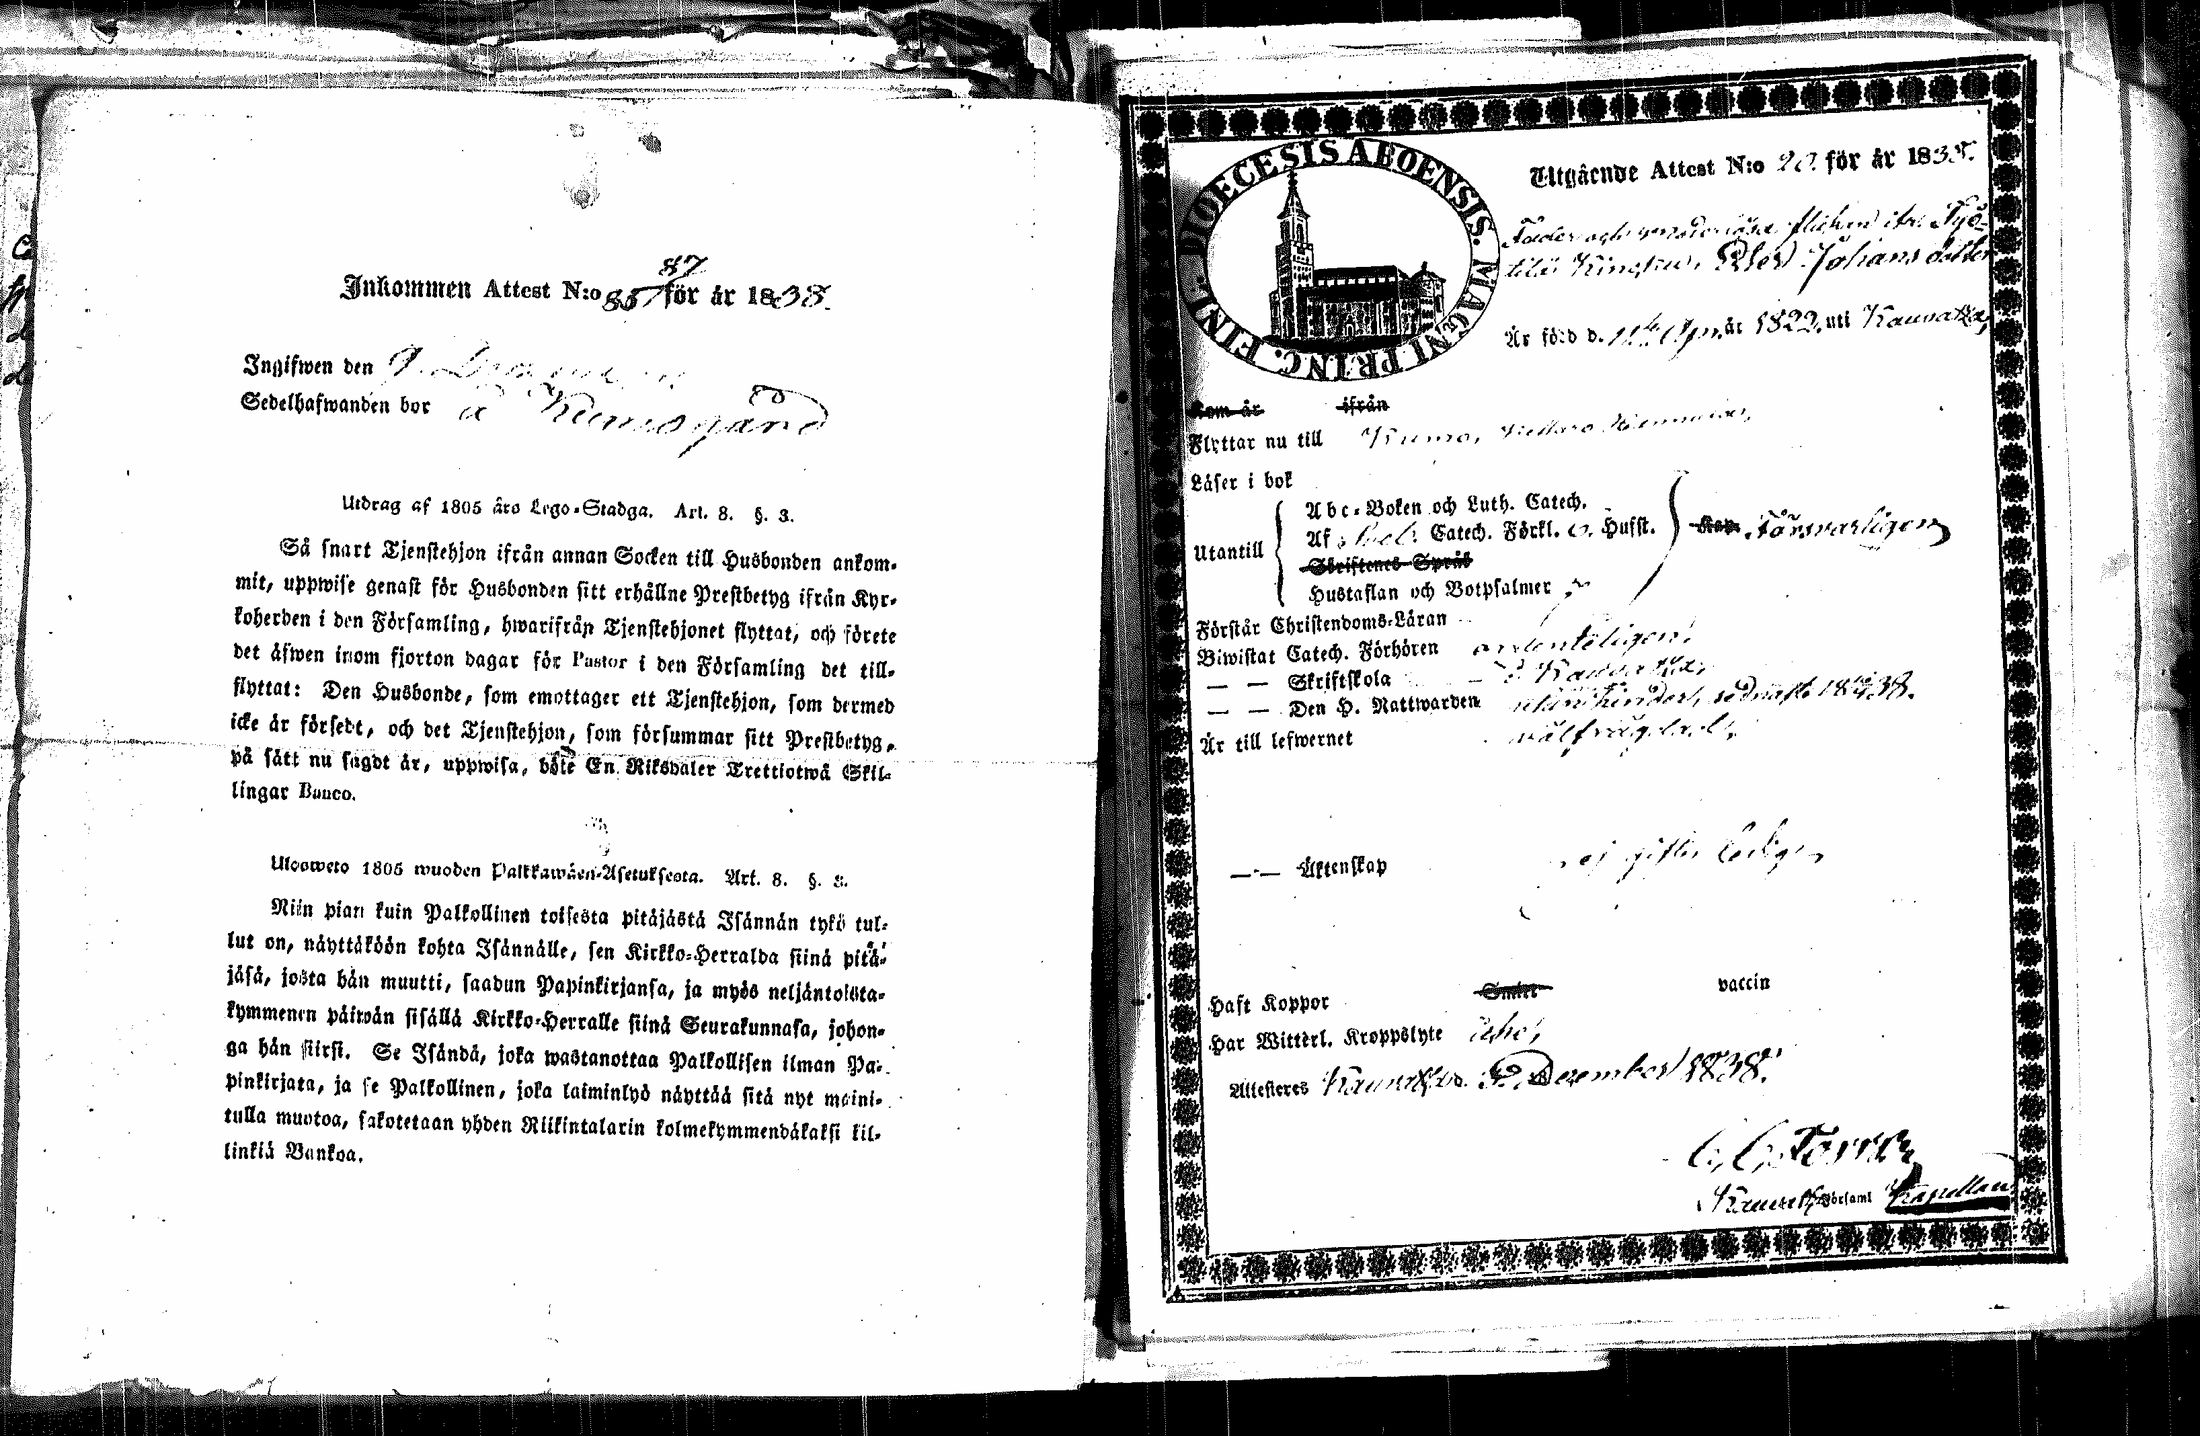 Inkommen Attest N:o 857 87 för år 1838.
Ingifwen den 9.
Sedelhafwanden bor à Kumogård
Utdrag af 1805 års Lego-Stadga. Art. 8. §. 3.
Så snart Tjenstehjon ifrån annan Socken till Husbonden ankom-
mit, uppwise genast för Husbonden sitt erhållne Prestbetyg ifrån Kyr-
koherden i den Församling, hwarifrån Tjenstehjonet flyttat, och förete
det äfwen inom fjorton dagar för Pastor i den Församling det till-
flyttat: Den Husbonde, som emottager ett Tjenstehjon, som dermed
icke är försedt, och det Tjenstehjon, som försummar sitt Prestbetyg,
på sätt nu sagdt är, uppwisa, böte En Riksdaler Trettiotwå Skil-
lingar Banco.
Ulosweto 1805 wuoden Palkkawäen-Asetuksesta. Art. 8. §. 3.
Niin pian kuin Palkollinen toisesta pitäjästä Isännän tykö tul-
lut on, näyttäköön kohta Isännälle, sen Kirkko-Herralda siinä pitä-
jäsä, josta hän muutti, saadun Papinkirjansa, ja myös neljäntoista-
kymmenen päiwän sisällä Kirkko-Herralle siinä Seurakunnasa, johon-
ga hän siirsi. Se Isändä, joka wastanottaa Palkollisen ilman Pa-
pinkirjata, ja se Palkollinen, joka laiminlyö näyttää sitä nyt maini-
tulla muotoa, sakotetaan yhden Riikintalarin kolmekymmendäkaksi kil-
linkiä Bankoa.
DIOECESIS ABOENSIS. MAGNI PRINC. FINL.
Utgående Attest N:o 20 för år 1838.
Fader och moderlösa flickan ifr.
Johans dotter
Är född d. 11te Apr. år 1822, uti Kauvatza,
Kom år ifrån
Flyttar nu till Kumo,
Läser i bok
Abc-Boken och Luth. Catech.
Utantill Af Catech. Förkl. o. Hufst. försvarligen
Skriftenes Språk
Hustaflan och Botpsalmer
Förstår Christendoms-Läran
Biwistat Catech. Förhören ordenteligen,
— — Skriftskola i Kauvatza,
— — Den H. Nattwarden
Är till lefwernet välfrägdad,
— — Äktenskap ej gift, ledig
Haft Koppor Smitt vaccin
Har Witterl. Kroppslyte icke,
Attesteres Kauvatza d. December 1838.
Kauvatza Församl Kapellan